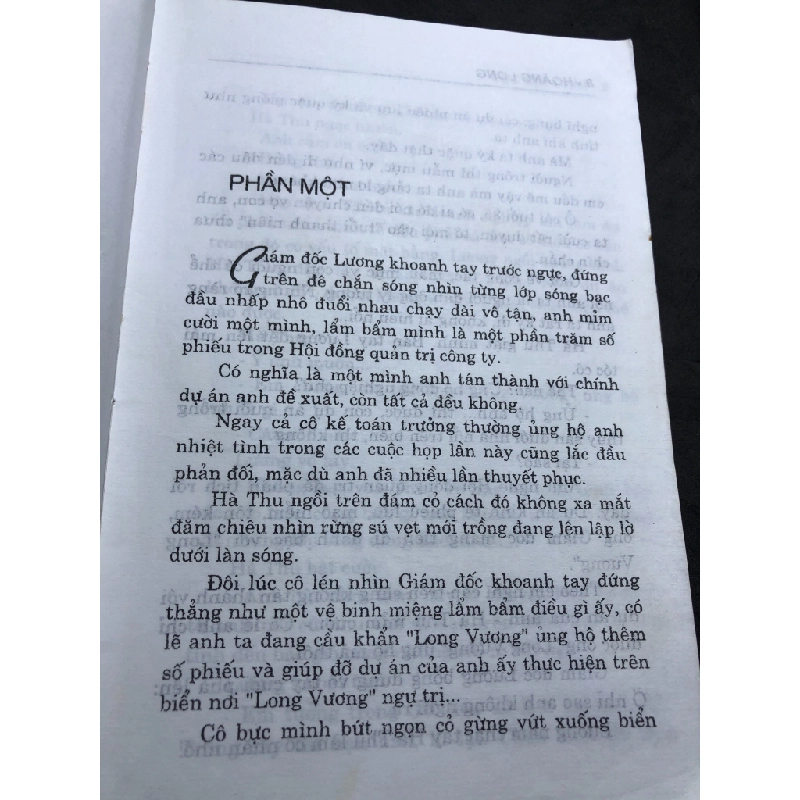 PHẦN MỘT
Giám đốc Lương khoanh tay trước ngực, đứng
trên đê chắn sóng nhìn từng lớp sóng bạc
đầu nhấp nhô đuổi nhau chạy dài vô tận, anh mỉm
cười một mình, lẩm bẩm mình là một phần trăm số
phiếu trong Hội đồng quản trị công ty.
Có nghĩa là một mình anh tán thành với chính
dự án anh đề xuất, còn tất cả đều không.
Ngay cả cô kế toán trưởng thường ủng hộ anh
nhiệt tình trong các cuộc họp lần này cũng lắc đầu
phản đối, mặc dù anh đã nhiều lần thuyết phục.
Hà Thu ngồi trên đám cỏ cách đó không xa mắt
đăm chiêu nhìn rừng sú vẹt mới trồng đang lên lập lờ
dưới làn sóng.
Đôi lúc cô lén nhìn Giám đốc khoanh tay đứng
thẳng như một vệ binh miệng lẩm bẩm điều gì ấy, có
lẽ anh ta đang cầu khẩn "Long Vương" ủng hộ thêm
số phiếu và giúp đỡ dự án của anh ấy thực hiện trên
biển nơi "Long Vương" ngự trị...
Cô bực mình bứt ngọn cỏ gừng vứt xuống biển